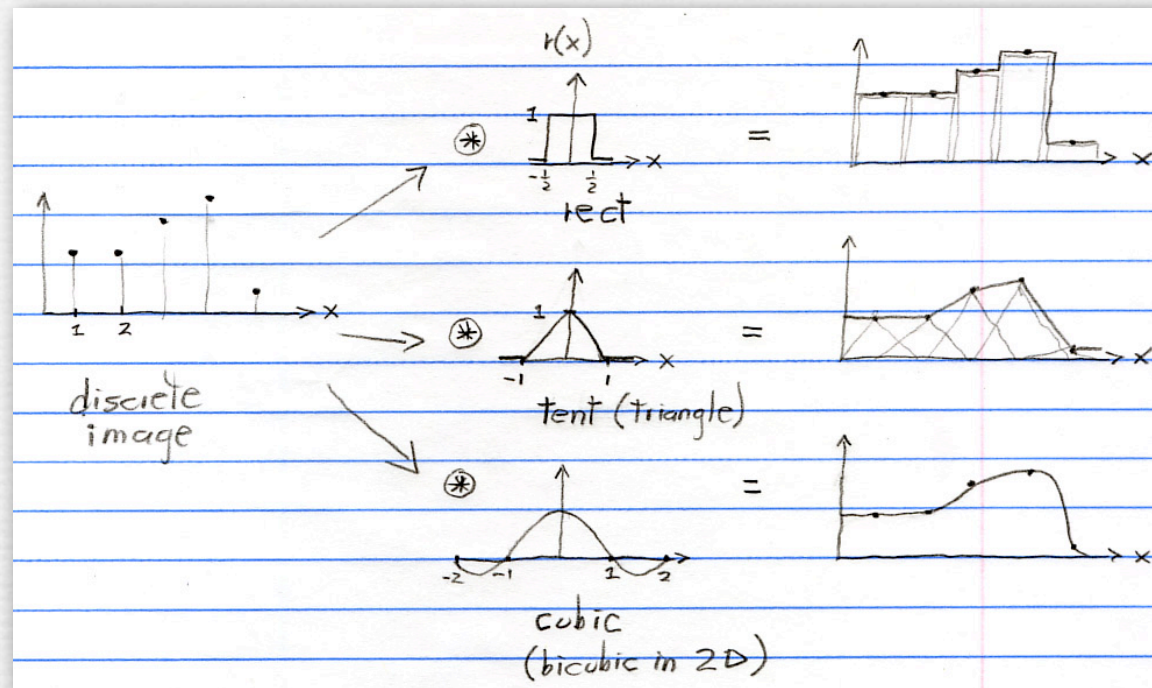 r(x)
1
-½ ½ x
rect
*
=
x
1 2 x
discrete
image
*
1
-1 1 x
tent (triangle)
=
x
*
-2 -1 1 2
cubic
(bicubic in 2D)
=
x